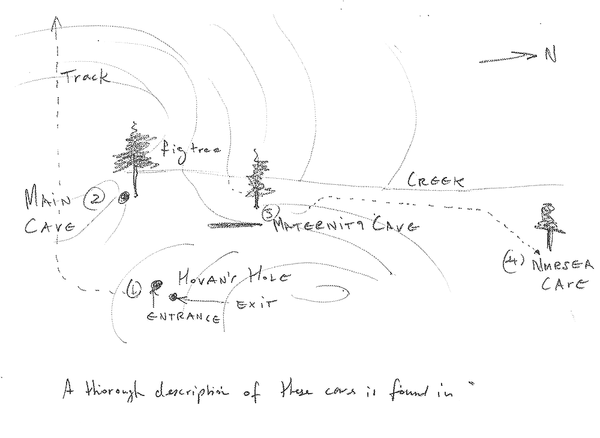 N
Track
fig tree
CREEK
MAIN
CAVE
2
3
MATERNITY CAVE
4
NURSEA
CAVE
1
HOVAN'S HOLE
ENTRANCE
EXIT
A thorough description of these caves is found in "